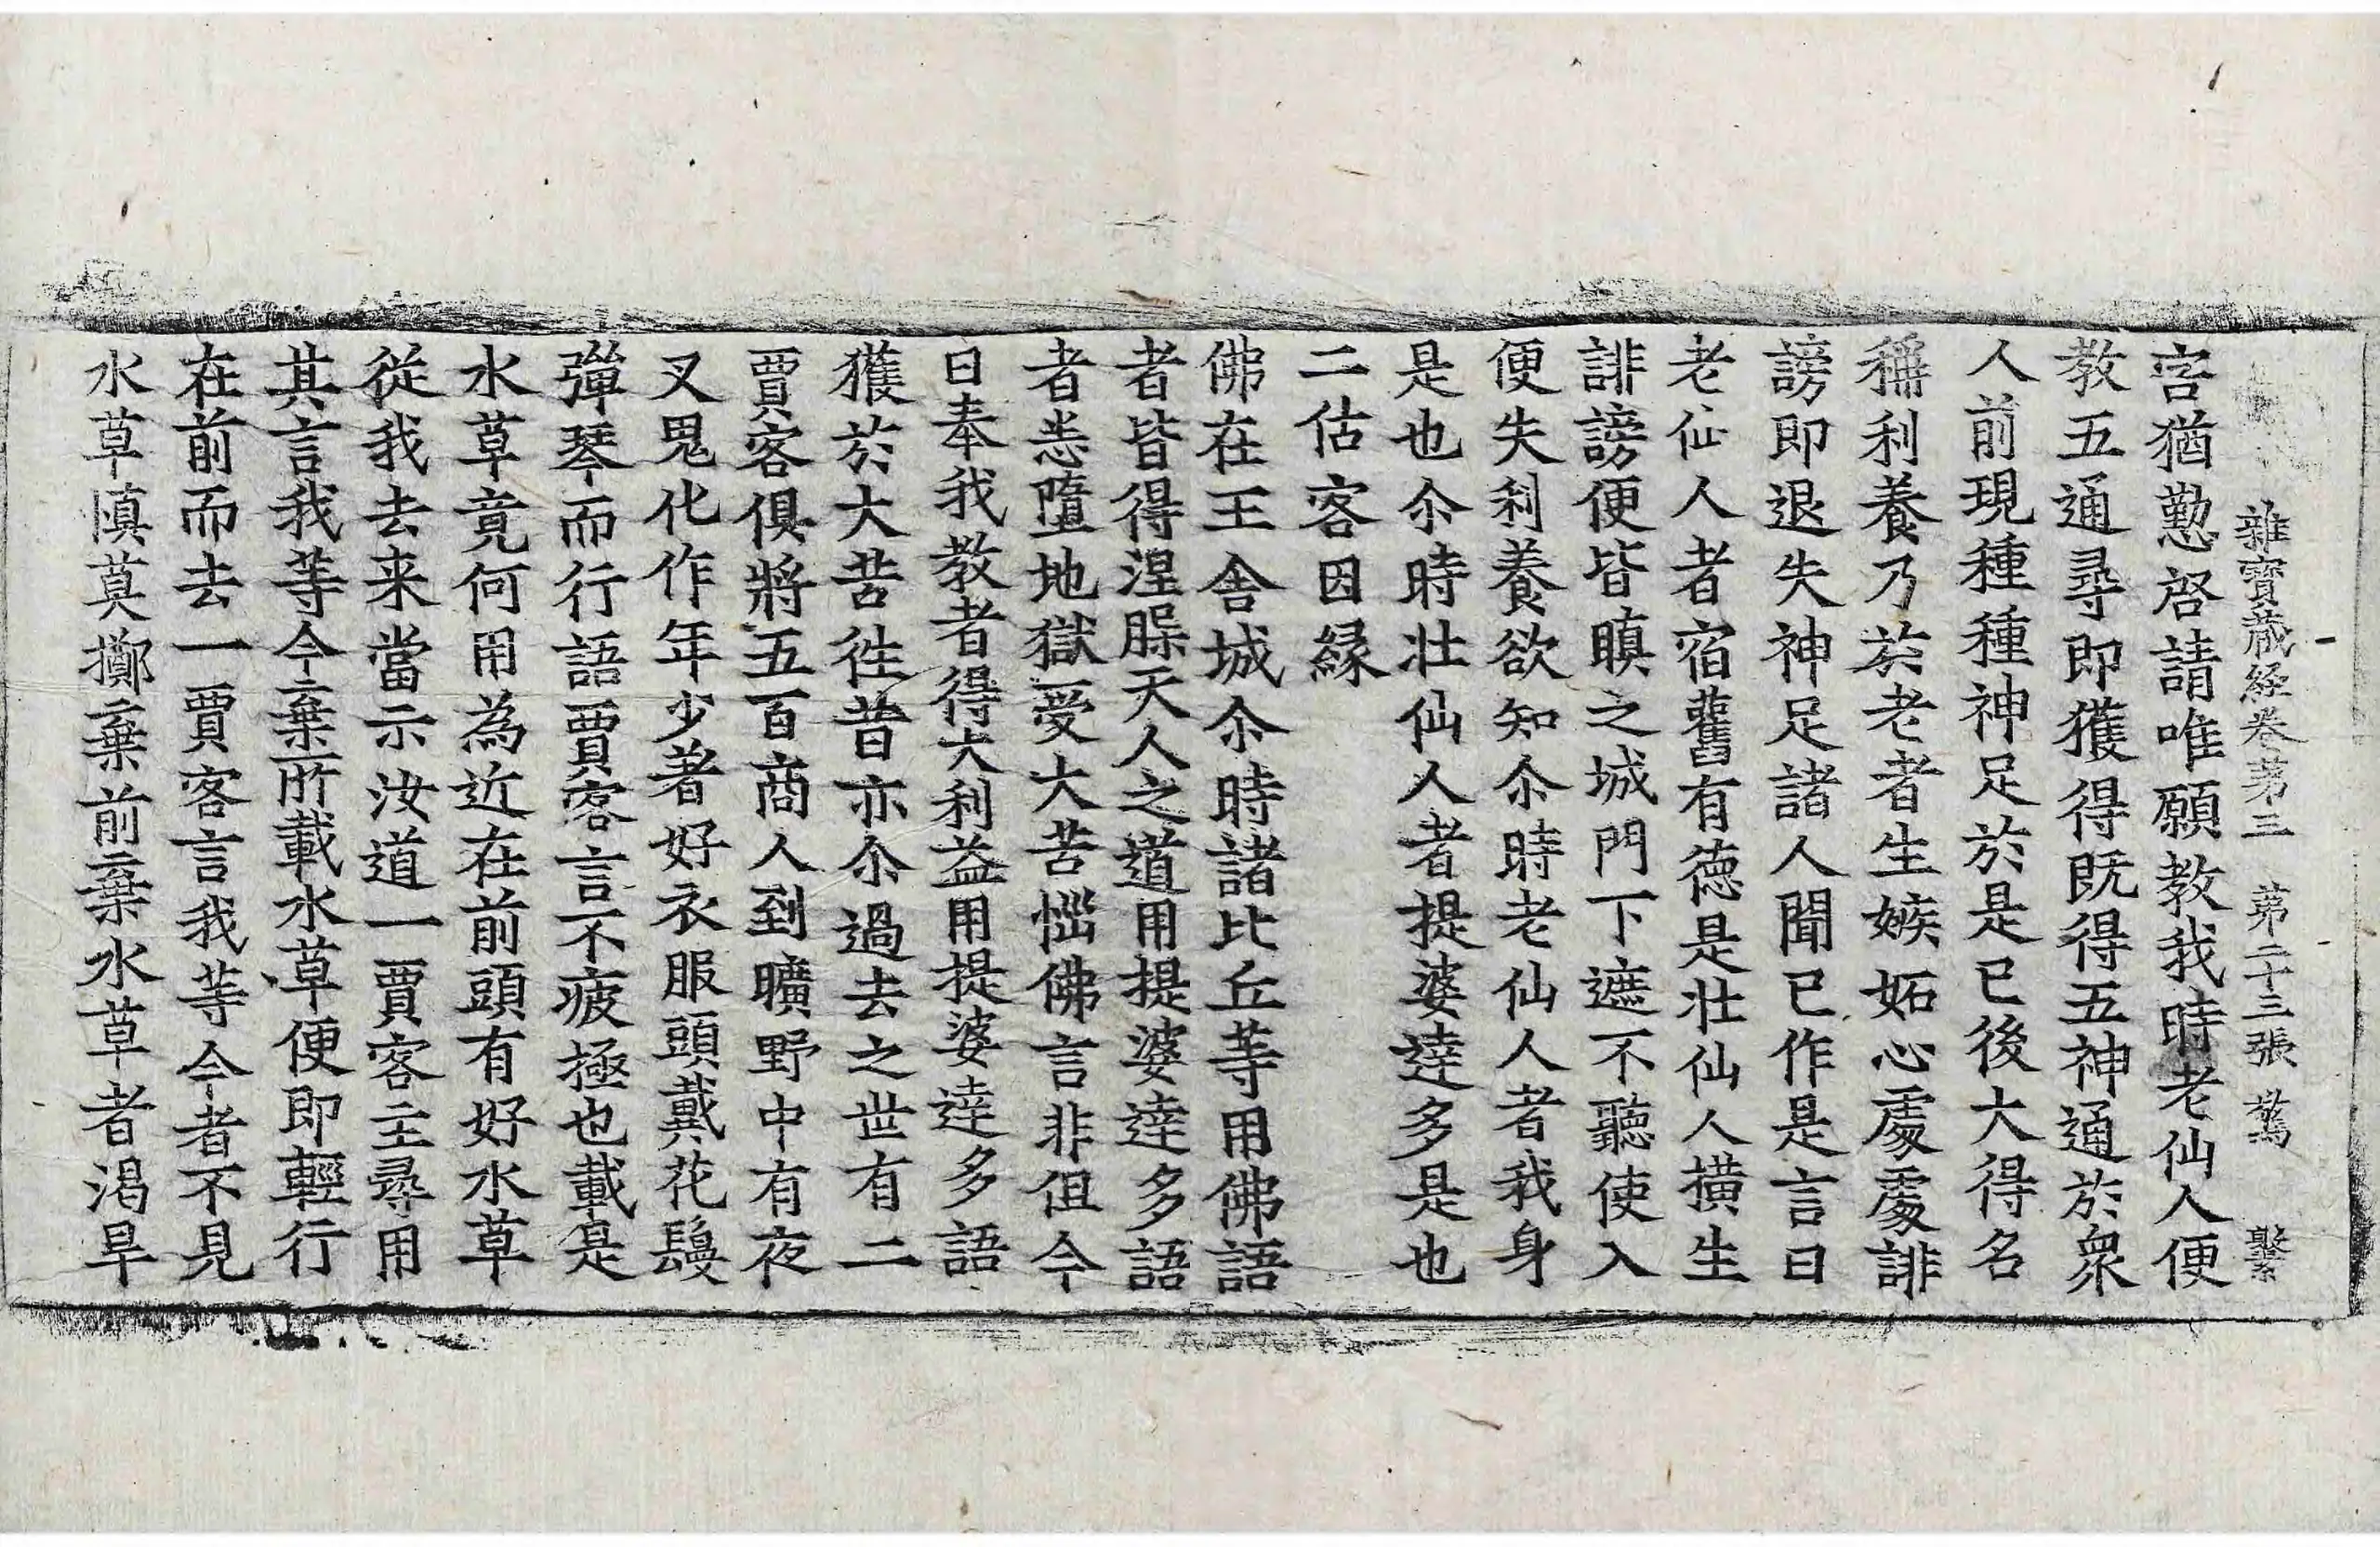 雜寶蔵経卷苐三 苐二十三張 驚 繫
害猶懃啓請唯願教我時老仙人便
教五通尋即獲得既得五神通於衆
人前現種種神足於是已後大得名
稱利養乃於老者生嫉妬心處處誹
謗即退失神足諸人聞已作是言曰
老仙人者宿舊有德是壯仙人横生
誹謗便皆瞋之城門下遮不聽使入
便失利養欲知尒時老仙人者我身
是也尒時壯仙人者提婆達多是也
二估客因緣
佛在王舍城尒時諸比丘等用佛語
者皆得涅槃天人之道用提婆達多語
者恙墮地獄受大苦惱佛言非但今
日奉我教者得大利益用提婆達多語
獲於大苦徃昔亦尒過去之世有二
賈客俱將五百商人到曠野中有夜
叉鬼化作年少著好衣服頭戴花鬘
彈琴而行語賈客言不疲極也載是
水草竟何用為近在前頭有好水草
從我去来當示汝道一賈客主尋用
其言我等今棄所載水草便即輕行
在前而去一賈客言我等今者不見
水草慎莫擲棄前棄水草者渴旱